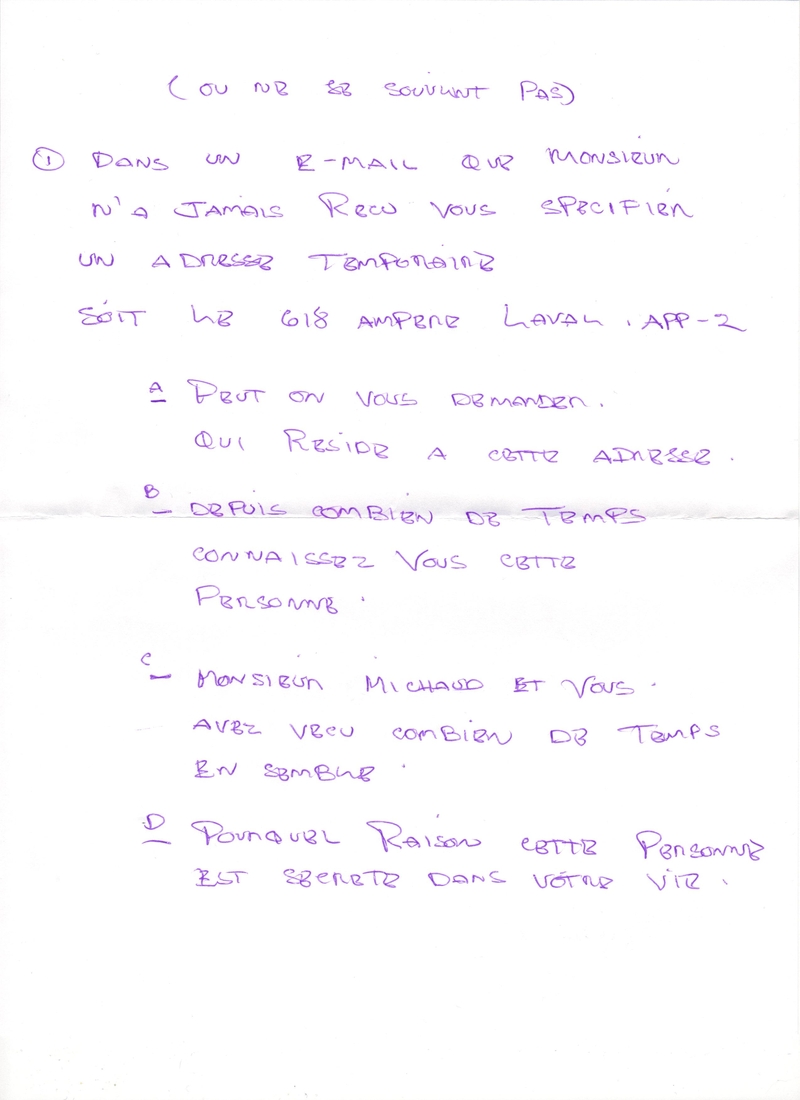 ( OU NE SE SOUVIENT PAS)
① DANS UN E-MAIL QUE MONSIEUR
N'A JAMAIS RECU VOUS SPECIFIER
UN ADRESSE TEMPORAIRE
SOIT LE 618 AMPERE LAVAL . APP-2
A PEUT ON VOUS DEMANDER .
QUI RESIDE A CETTE ADRESSE .
B - DEPUIS COMBIEN DE TEMPS
CONNAISSEZ VOUS CETTE
PERSONNE .
C - MONSIEUR MICHAUD ET VOUS .
AVEZ VECU COMBIEN DE TEMPS
EN SEMBLE .
D POURQUEL RAISON CETTE PERSONNE
EST SECRETE DANS VOTRE VIE .